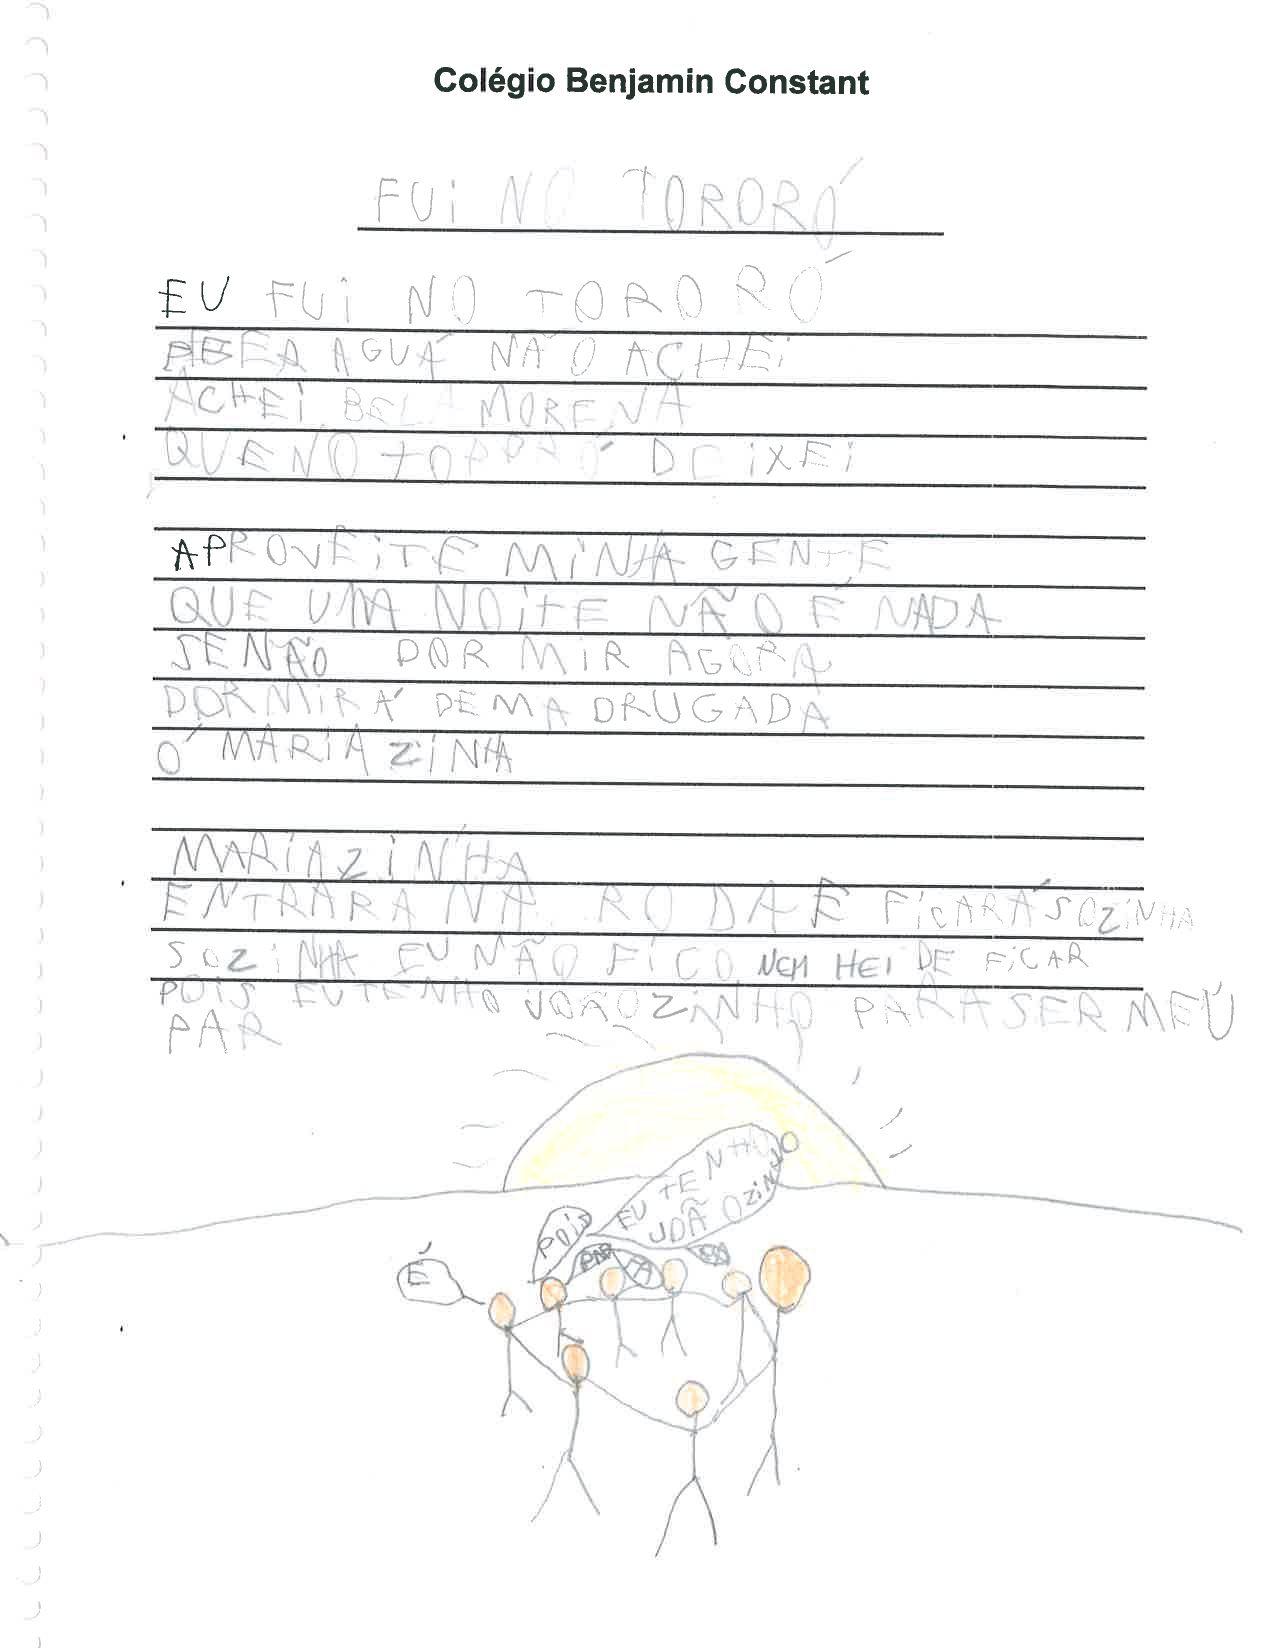 Colégio Benjamin Constant
FUi NO TORORÓ
EU FUi NO TORORÓ
AGUÁ NÃO ACHEi
ACHEi BELA MORENA
QUE NO TORORÓ DEiXEi
APROVEiTE MiNHA GENTE
QUE UMA NOiTE NÃO É NADA
SE NÃO DORMiR AGORA
DORMiRÁ DE MADRUGADA
Ó MARiAZiNHA
MARiAZiNHA
ENTRARA NA RODA E FiCARÁ SOZiNHA
SOZiNHA EU NÃO FiCO NEM HEI DE FiCAR
POiS EU TENHO JOÃOZiNHO PARA SER MEU
PAR
EU TENHO
JOÃOZiNHO
POiS
PAR
PA
É